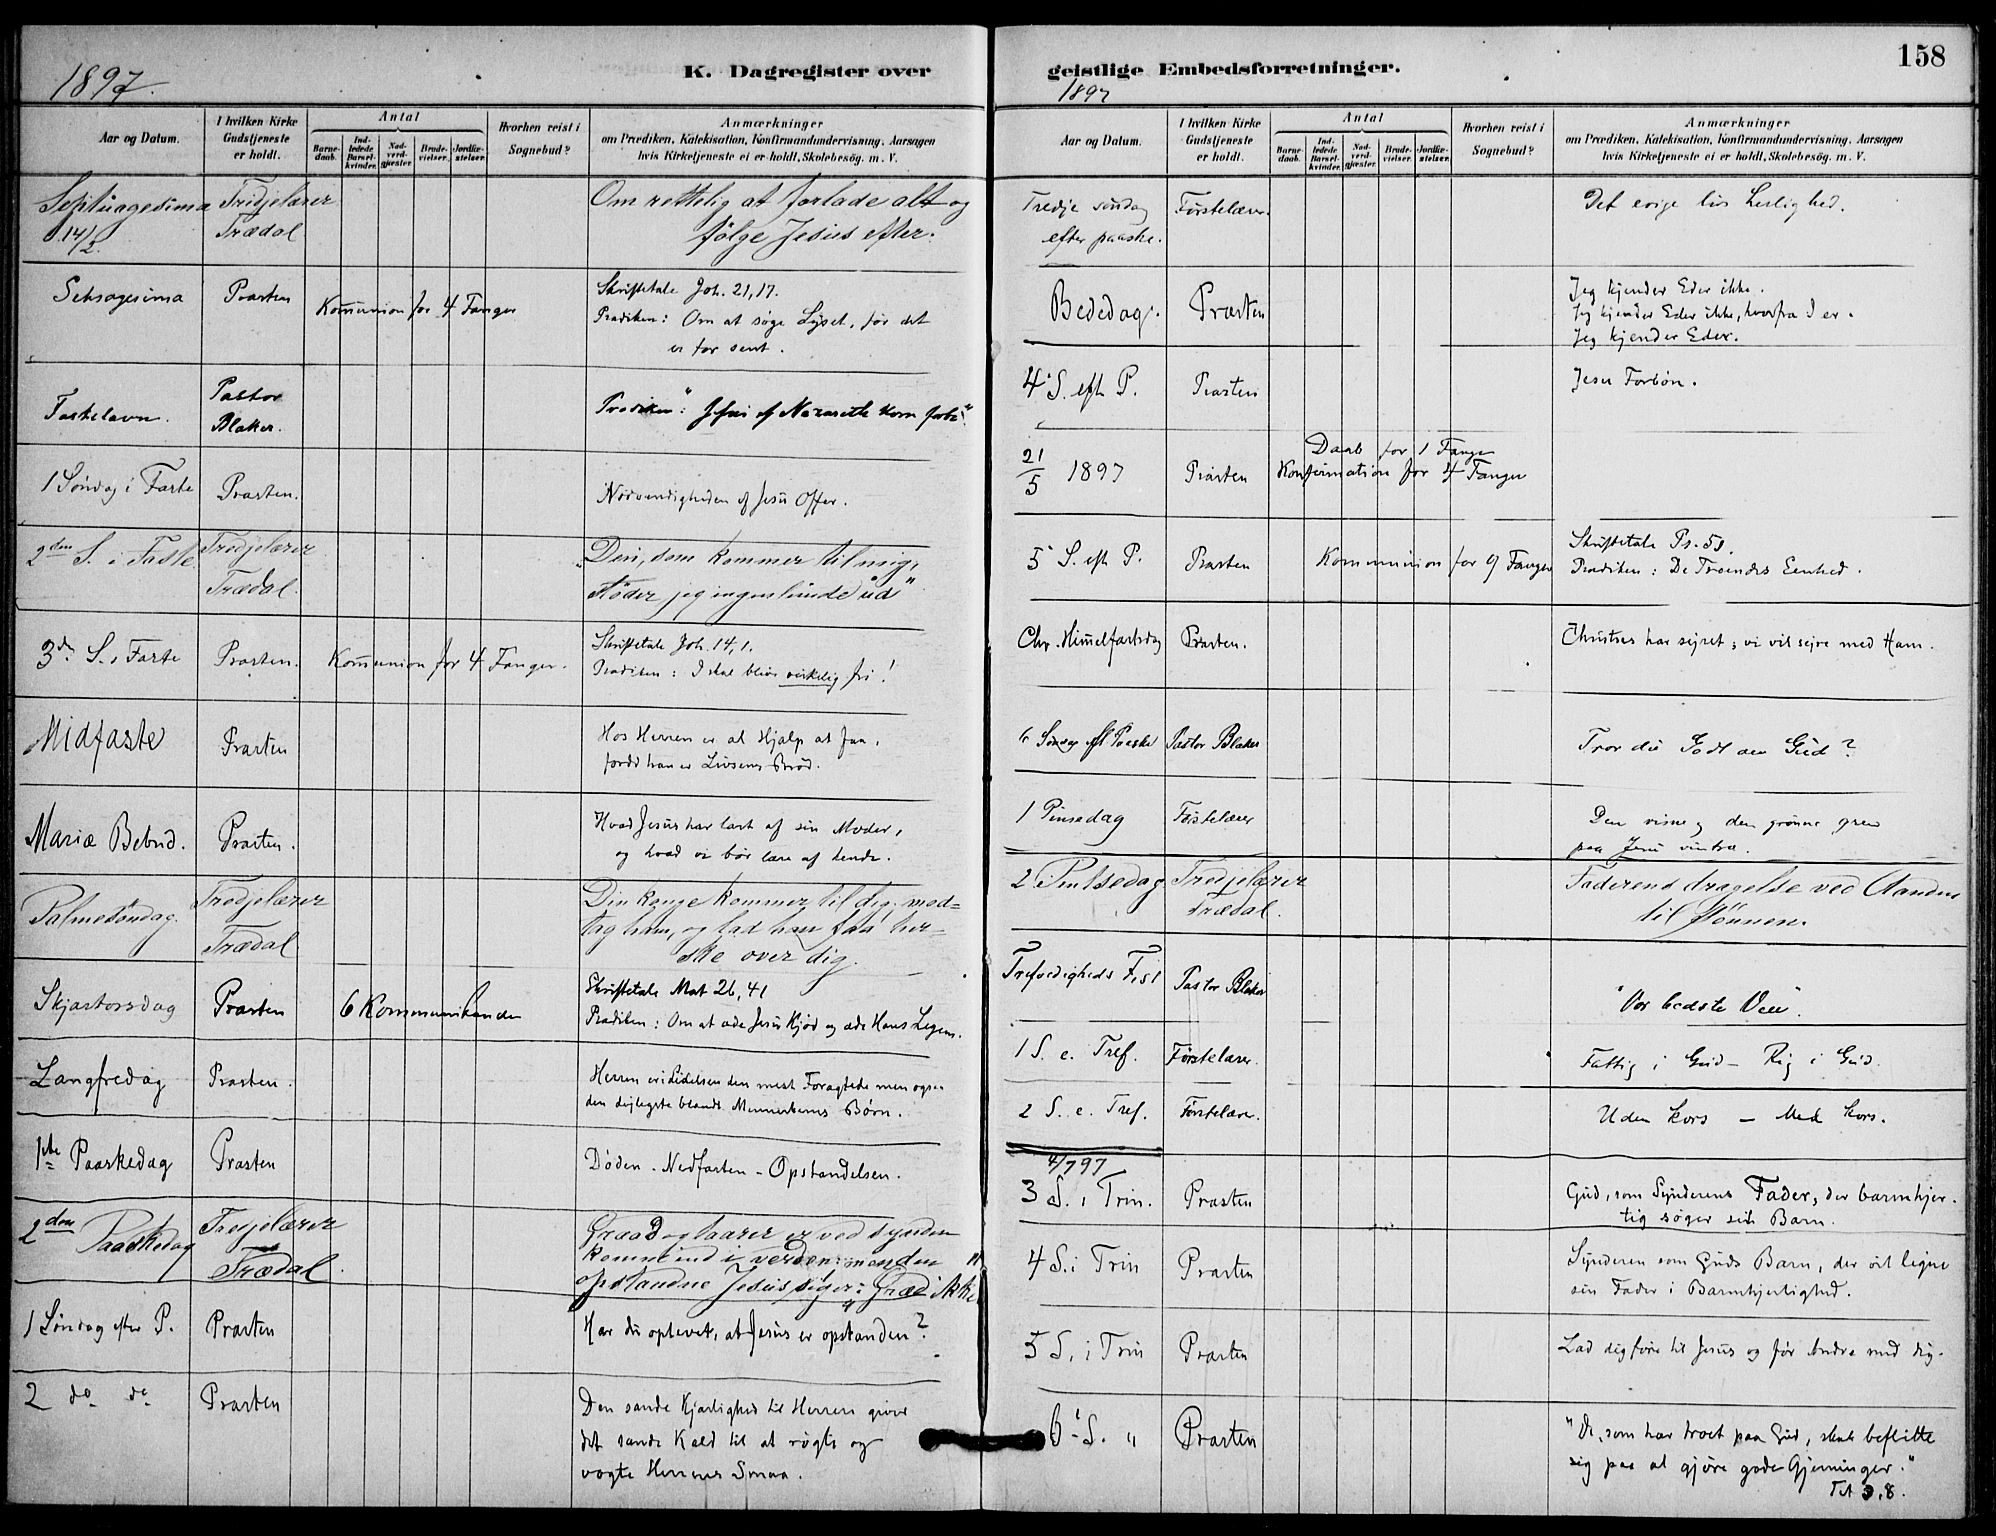 1897.
K. Dagregister over
Aar og Datum.
I hvilken Kirke Gudstjeneste er holdt.
Antal
Barnedaab.
Indledede Barselkvinder.
Nadverdgjæster.
Brudevielser.
Jordfæstelser.
Hvorhen reist i Sognebud?
Anmærkninger
om Prædiken, Katekisation, Konfirmandundervisning, Aarsagen
hvis Kirketjeneste ei er holdt, Skolebesög. m. V.
Septuagesima
14/2
Tredjelærer
Trædal
Om rettelig at forlade alt og
følge Jesus efter.
Seksagesima
Præsten
Kommunion for 4 Fanger
Skriftetale Joh. 21,17.
Prædiken: Om at søge Lyset, før det
er for sent.
Fastelavn.
Pastor
Blaker.
Prædiken: "Jesus af Nazareth kom forbi".
1 Søndag i Faste
Præsten.
Nødvendigheden af Jesu Offer.
2den S. i Faste
Tredjelærer
Trædal.
"Den, som kommer til mig,
støder jeg ingenlunde ud"
3die S. i Faste
Præsten.
Kommunion for 4 Fanger.
Skriftetale Joh. 14,1.
Prædiken: I skal blive virkelig fri!
Midfaste
Præsten
Hos Herren er al Hjælp at faa,
fordi han er Livsens Brød.
Mariæ Bebud.
Præsten.
Hvad Jesus har lært af sin Moder,
og hvad vi bør lære af hende.
Palmesøndag.
Tredjelærer
Trædal
Din konge kommer til dig; mod=
tag ham, og lad ham faa her=
ske over dig.
Skjærtorsdag
Præsten
6 Kommunikanter
Skriftetale Mat 26,41
Prædiken: Om at æde Jesu Kjød og æde Hans Legem.
Langfredag
Præsten.
Herren er i Lidelsen den mest Foragtede men ogsaa
den dejligste blandt Menneskenes Børn.
1ste Paaskedag
Præsten
Døden - Nedfarten - Opstandelsen.
2den Paaskedag
Tredjelærer
Trædal.
Graad og taarer er ved synden
kommet ind i verden; men den
opstandne Jesus siger: "Græd ikke"
1 Søndag efter P.
Præsten
Har du oplevet, at Jesus er opstanden?
2 do do
Præsten
Den sande Kjærlighed til Herren giver
det sande Kald til at røgte og
vogte Herrens Smaa.
geistlige Embedsforretninger.
158
1897
Aar og Datum.
I hvilken Kirke Gudstjeneste er holdt.
Antal
Barnedaab.
Indledede Barselkvinder.
Nadverdgjæster.
Brudevielser.
Jordfæstelser.
Hvorhen reist i Sognebud?
Anmærkninger
om Prædiken, Katekisation, Konfirmandundervisning, Aarsagen
hvis Kirketjeneste ei er holdt, Skolebesög. m. V.
Tredje søndag
efter paaske.
Førstelærer.
Det evige livs herlighed.
Bededag.
Præsten
Jeg kjender Eder ikke.
Jeg kjender Eder ikke, hvorfra I er.
Jeg kjender Eder.
4' S. eft P.
Præsten
Jesu Forbøn.
21/5 1897
Præsten
Daab for 1 Fange
Konfirmation for 4 Fanger
5' S. eft P.
Præsten
Kommunion for 9 Fanger
Skriftetale Ps. 51.
Prædiken: De Troendes Eenhed.
Chr. Himmelfartsdag
Præsten.
Christus har sejret; vi vil sejre med Ham.
6 Søndag eft Paaske
Pastor Blaker
Tror du Godt om Gud?
1 Pinsedag
Førstelærer
Den visne og den grønne gren
paa Jesu vintræ.
2 Pintsedag
Tredjelærer
Trædal.
Faderens dragelse ved Aanden
til Sønnen.
Trefoldigheds Fest
Pastor Blaker
"Vor bedste Ven".
1 S. e. Tref.
Førstelærer.
Fattig i Gud - Rig i Gud.
2 S. e. Tref.
Førstelærer.
Uden kors - Med kors.
4/7 97
3 S. i Trin.
Præsten
Gud, som Synderens Fader, der barmhjer-
tig søger sit Barn.
4 S. i Trin
Præsten
Synderen som Guds Barn, der vil ligne
sin Fader i Barmhjertighed.
5 S. i Trin
Præsten
Lad dig føre til Jesus og før Andre med dig.
6' S. "
Præsten
"De, som har troet paa Gud, skal beflitte
sig paa at gjøre gode Gjerninger."
Tit 3,8.